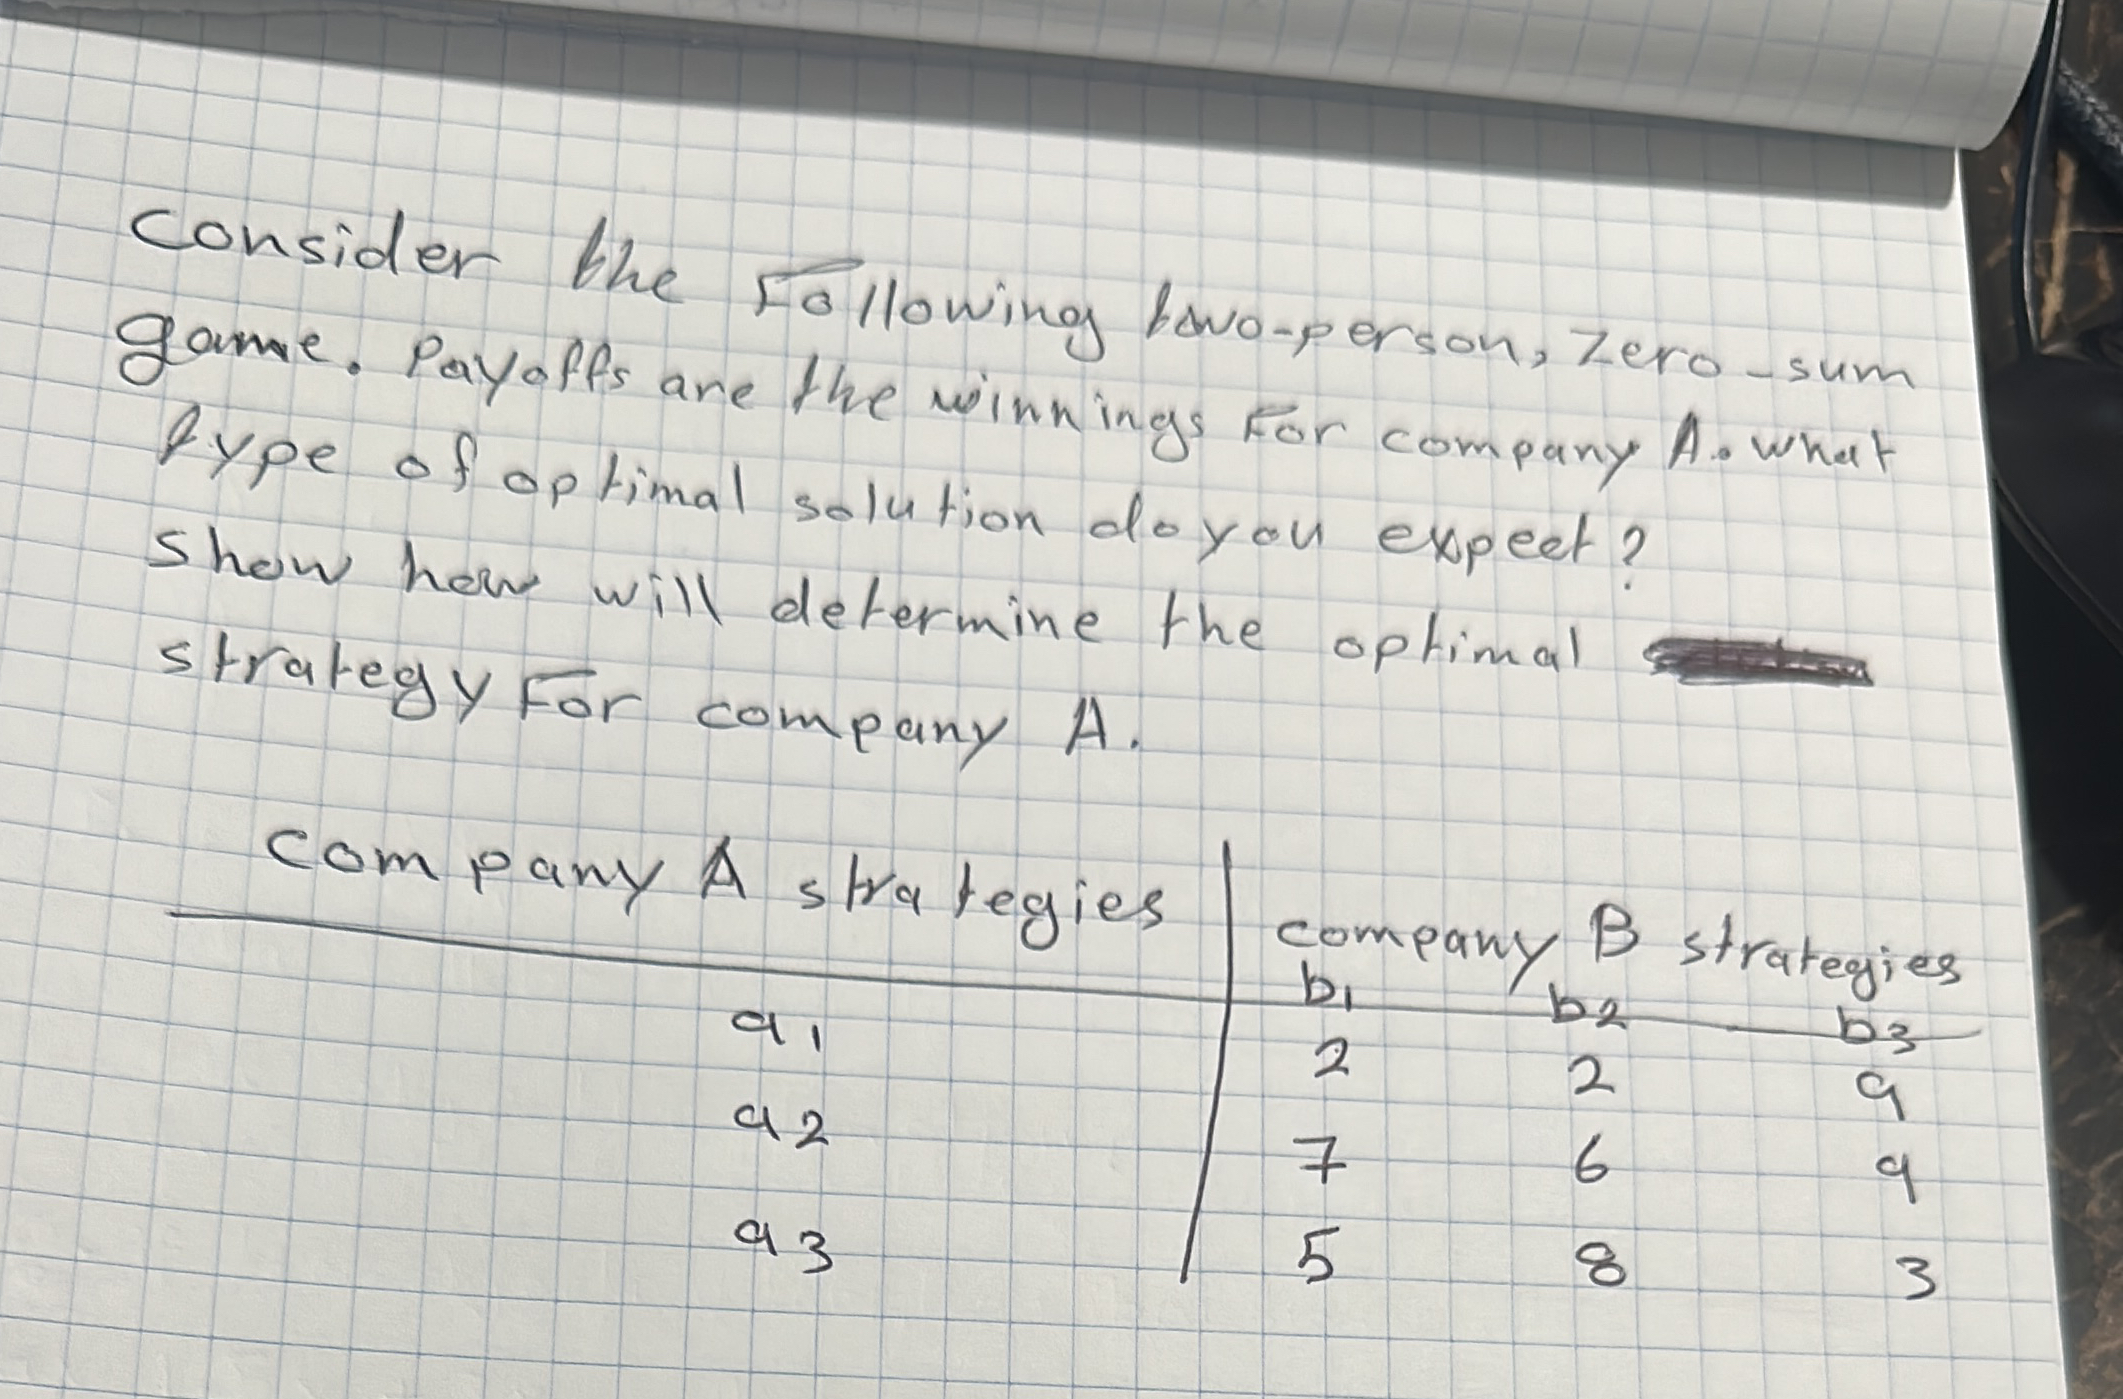 consider the Following two-person, Zero-sum
game. Payoffs are the winnings For company A. what
type of optimal solution do you expect?
show how will determine the optimal
strategy For company A.
company A strategies | company B strategies
b1 b2 b3
a1 2 2 9
a2 7 6 9
a3 5 8 3